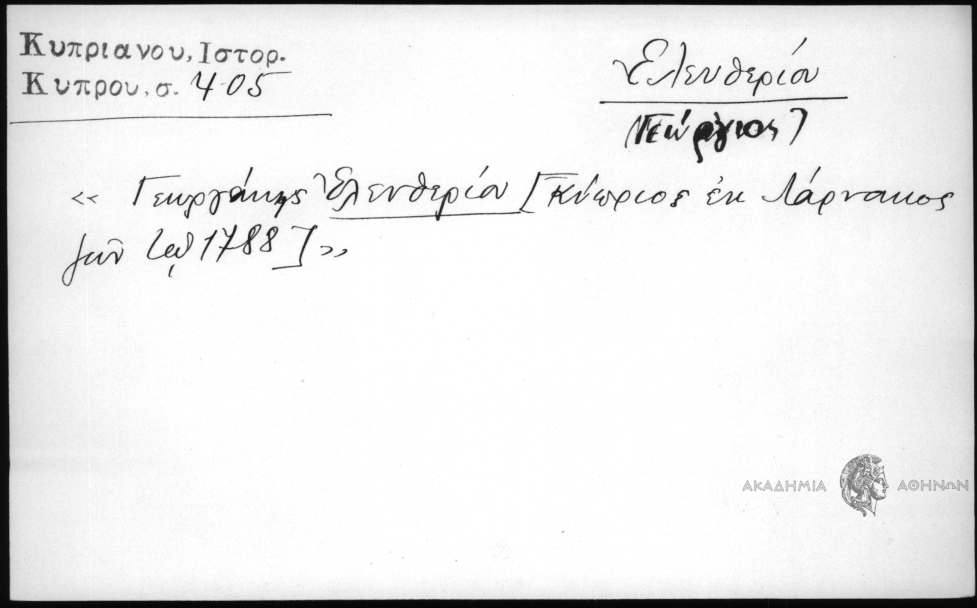 Κυπριανου, Ιστορ.
Κυπρου, σ. 405
Ἐλευθερίου
[Γεώργιος]
«Γεωργάκης Ἐλευθερίου [Κύπριος ἐκ Λάρνακος
ζῶν 1788]»
ΑΚΑΔΗΜΙΑ ΑΘΗΝΩΝ